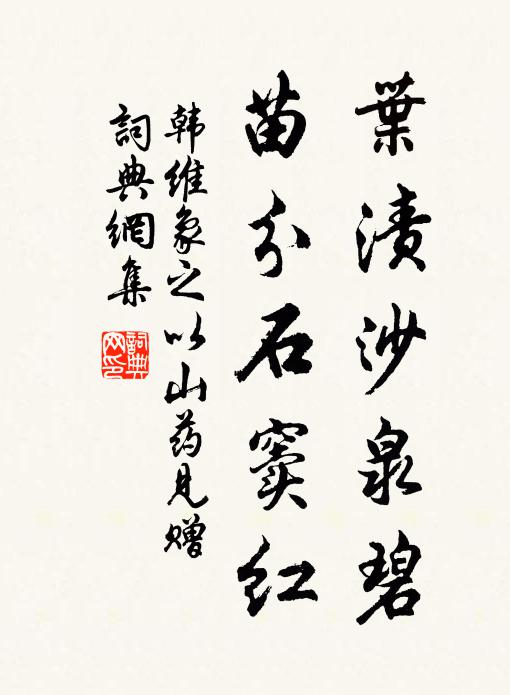 葉漬沙泉碧
苗分石窦紅
韩维象之以山药見赠
詞典網集
詞典網印